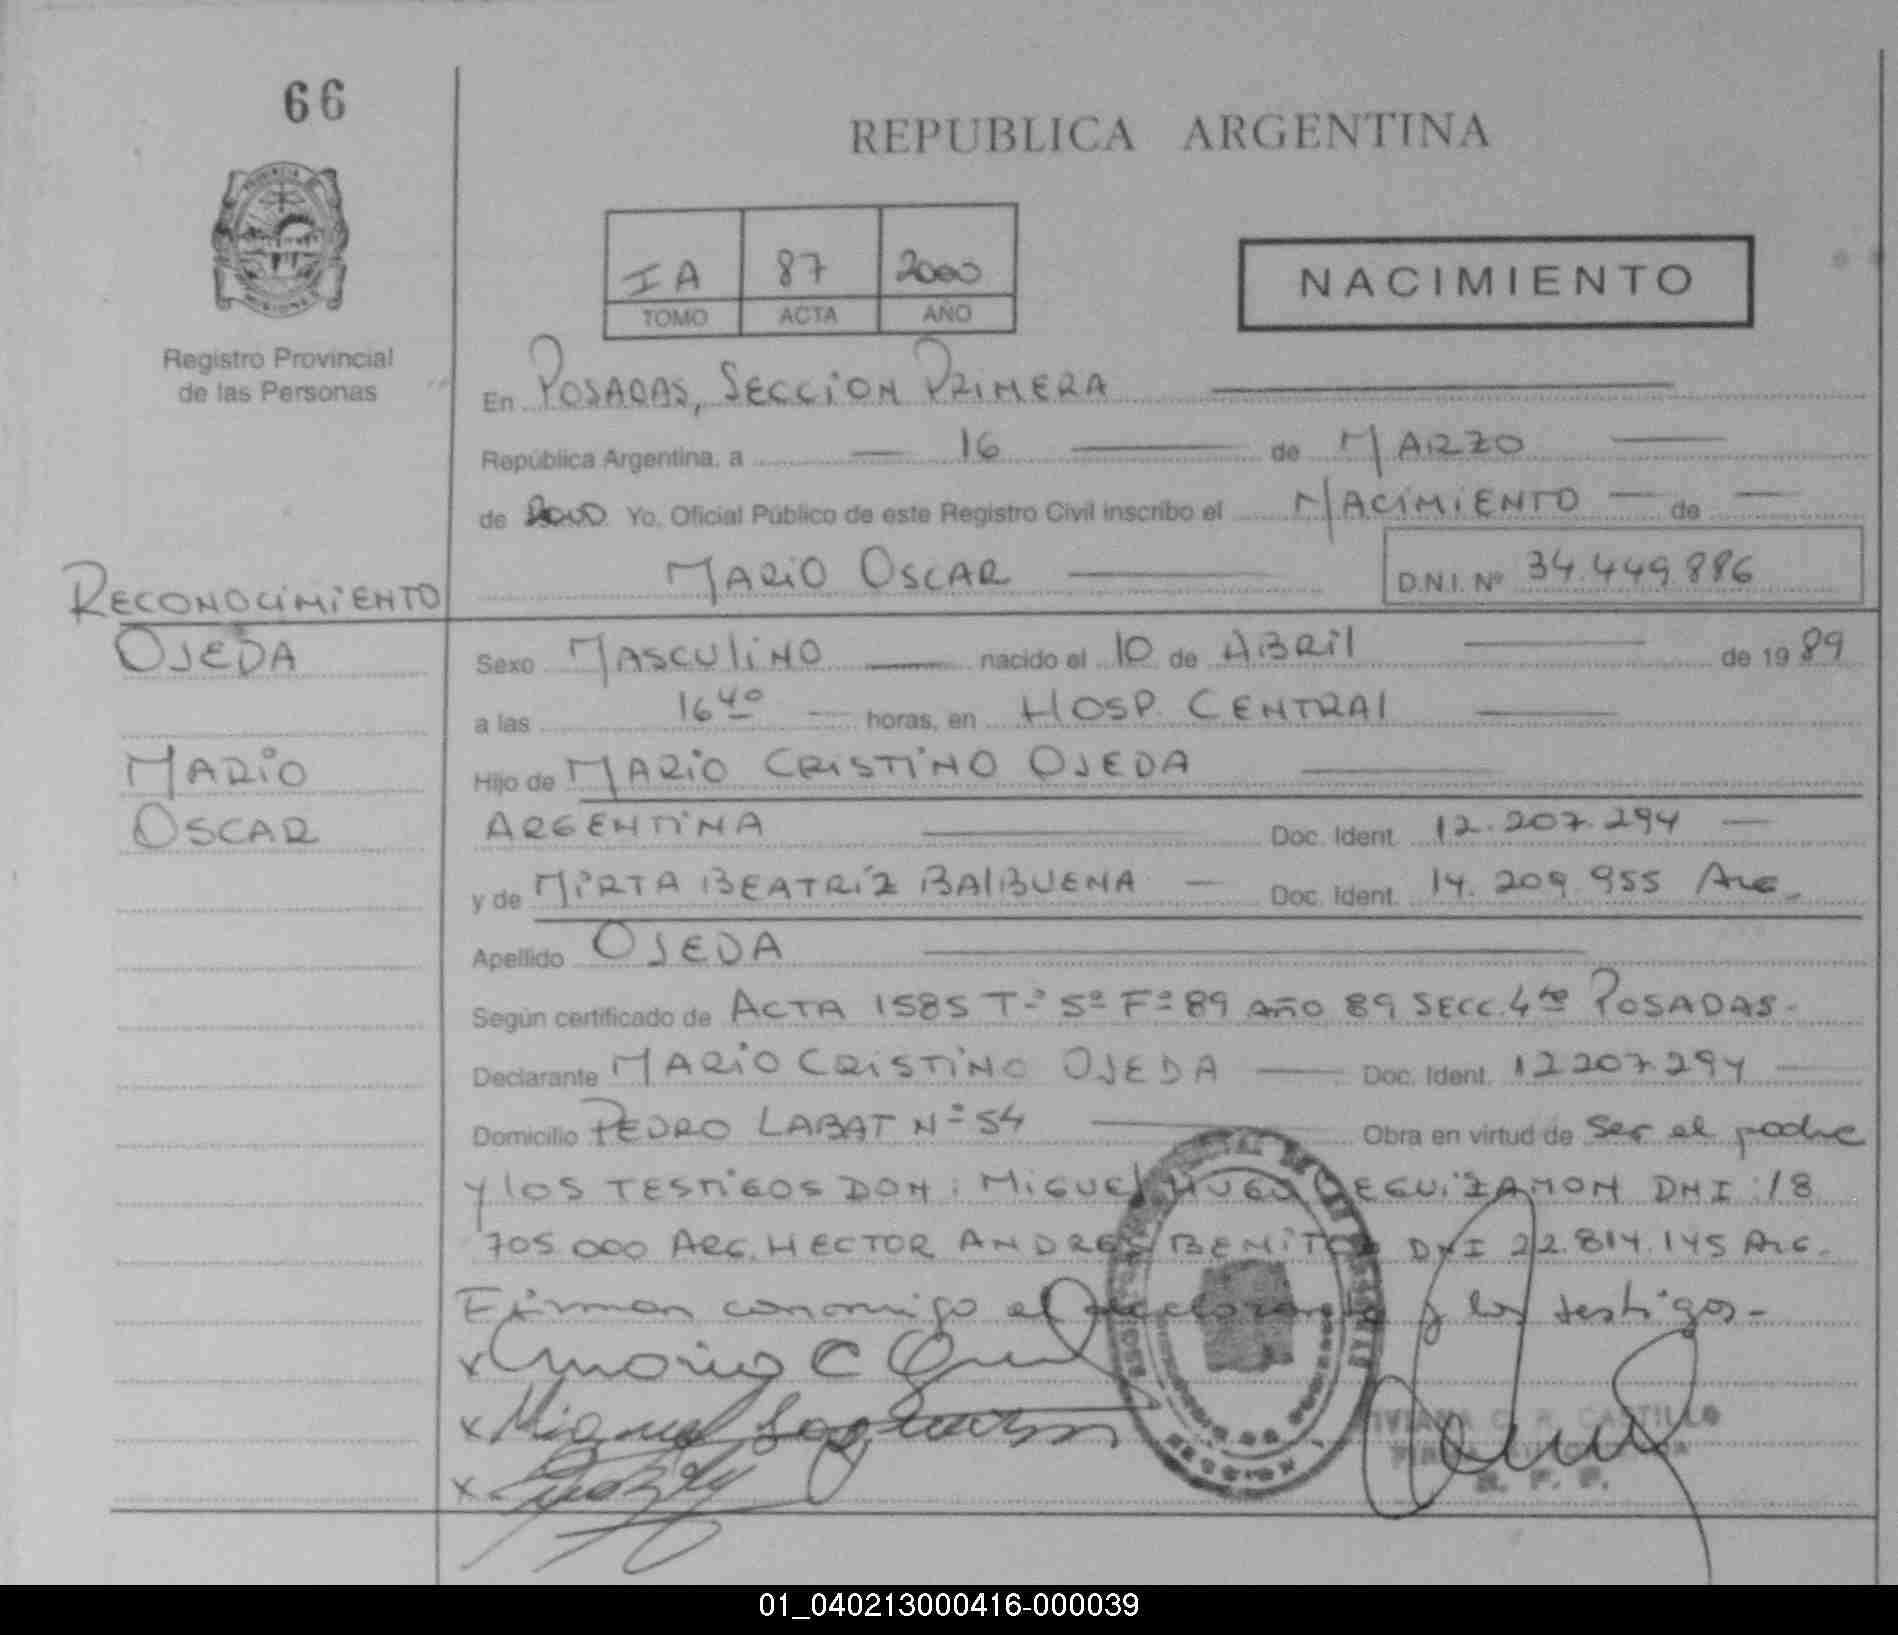 66
REPUBLICA ARGENTINA
IA 87 2000
TOMO ACTA AÑO
NACIMIENTO
Registro Provincial
de las Personas
En POSADAS, SECCION PRIMERA
República Argentina, a 16 de MARZO
de 2000 Yo, Oficial Público de este Registro Civil inscribo el NACIMIENTO de
MARIO OSCAR D.N.I. Nº 34.449.886
RECONOCIMIENTO
OJEDA
MARIO
OSCAR
Sexo MASCULINO nacido el 10 de ABRIL de 1989
a las 16 40 horas, en HOSP. CENTRAL
Hijo de MARIO CRISTINO OJEDA
ARGENTINA Doc. Ident. 12.207.294
y de MIRTA BEATRIZ BALBUENA Doc. Ident. 14.209.955 ARG.
Apellido OJEDA
Según certificado de ACTA 1585 Tº 5º Fº 89 AÑO 89 SECC. 4ta POSADAS.
Declarante MARIO CRISTINO OJEDA Doc. Ident. 12.207.294
Domicilio PEDRO LABAT Nº 54 Obra en virtud de ser el padre
y los TESTIGOS DON: MIGUEL HUGO LEGUIZAMON DNI 18
705.000 ARG. HECTOR ANDRES BENITEZ DNI 22.814.145 ARG.
Firman conmigo el declarante y los testigos.
x Mario C Ojeda
x Miguel Leguizamon
x
VIVIANA C. R. CASTILLO
R. P. P.
01_040213000416-000039